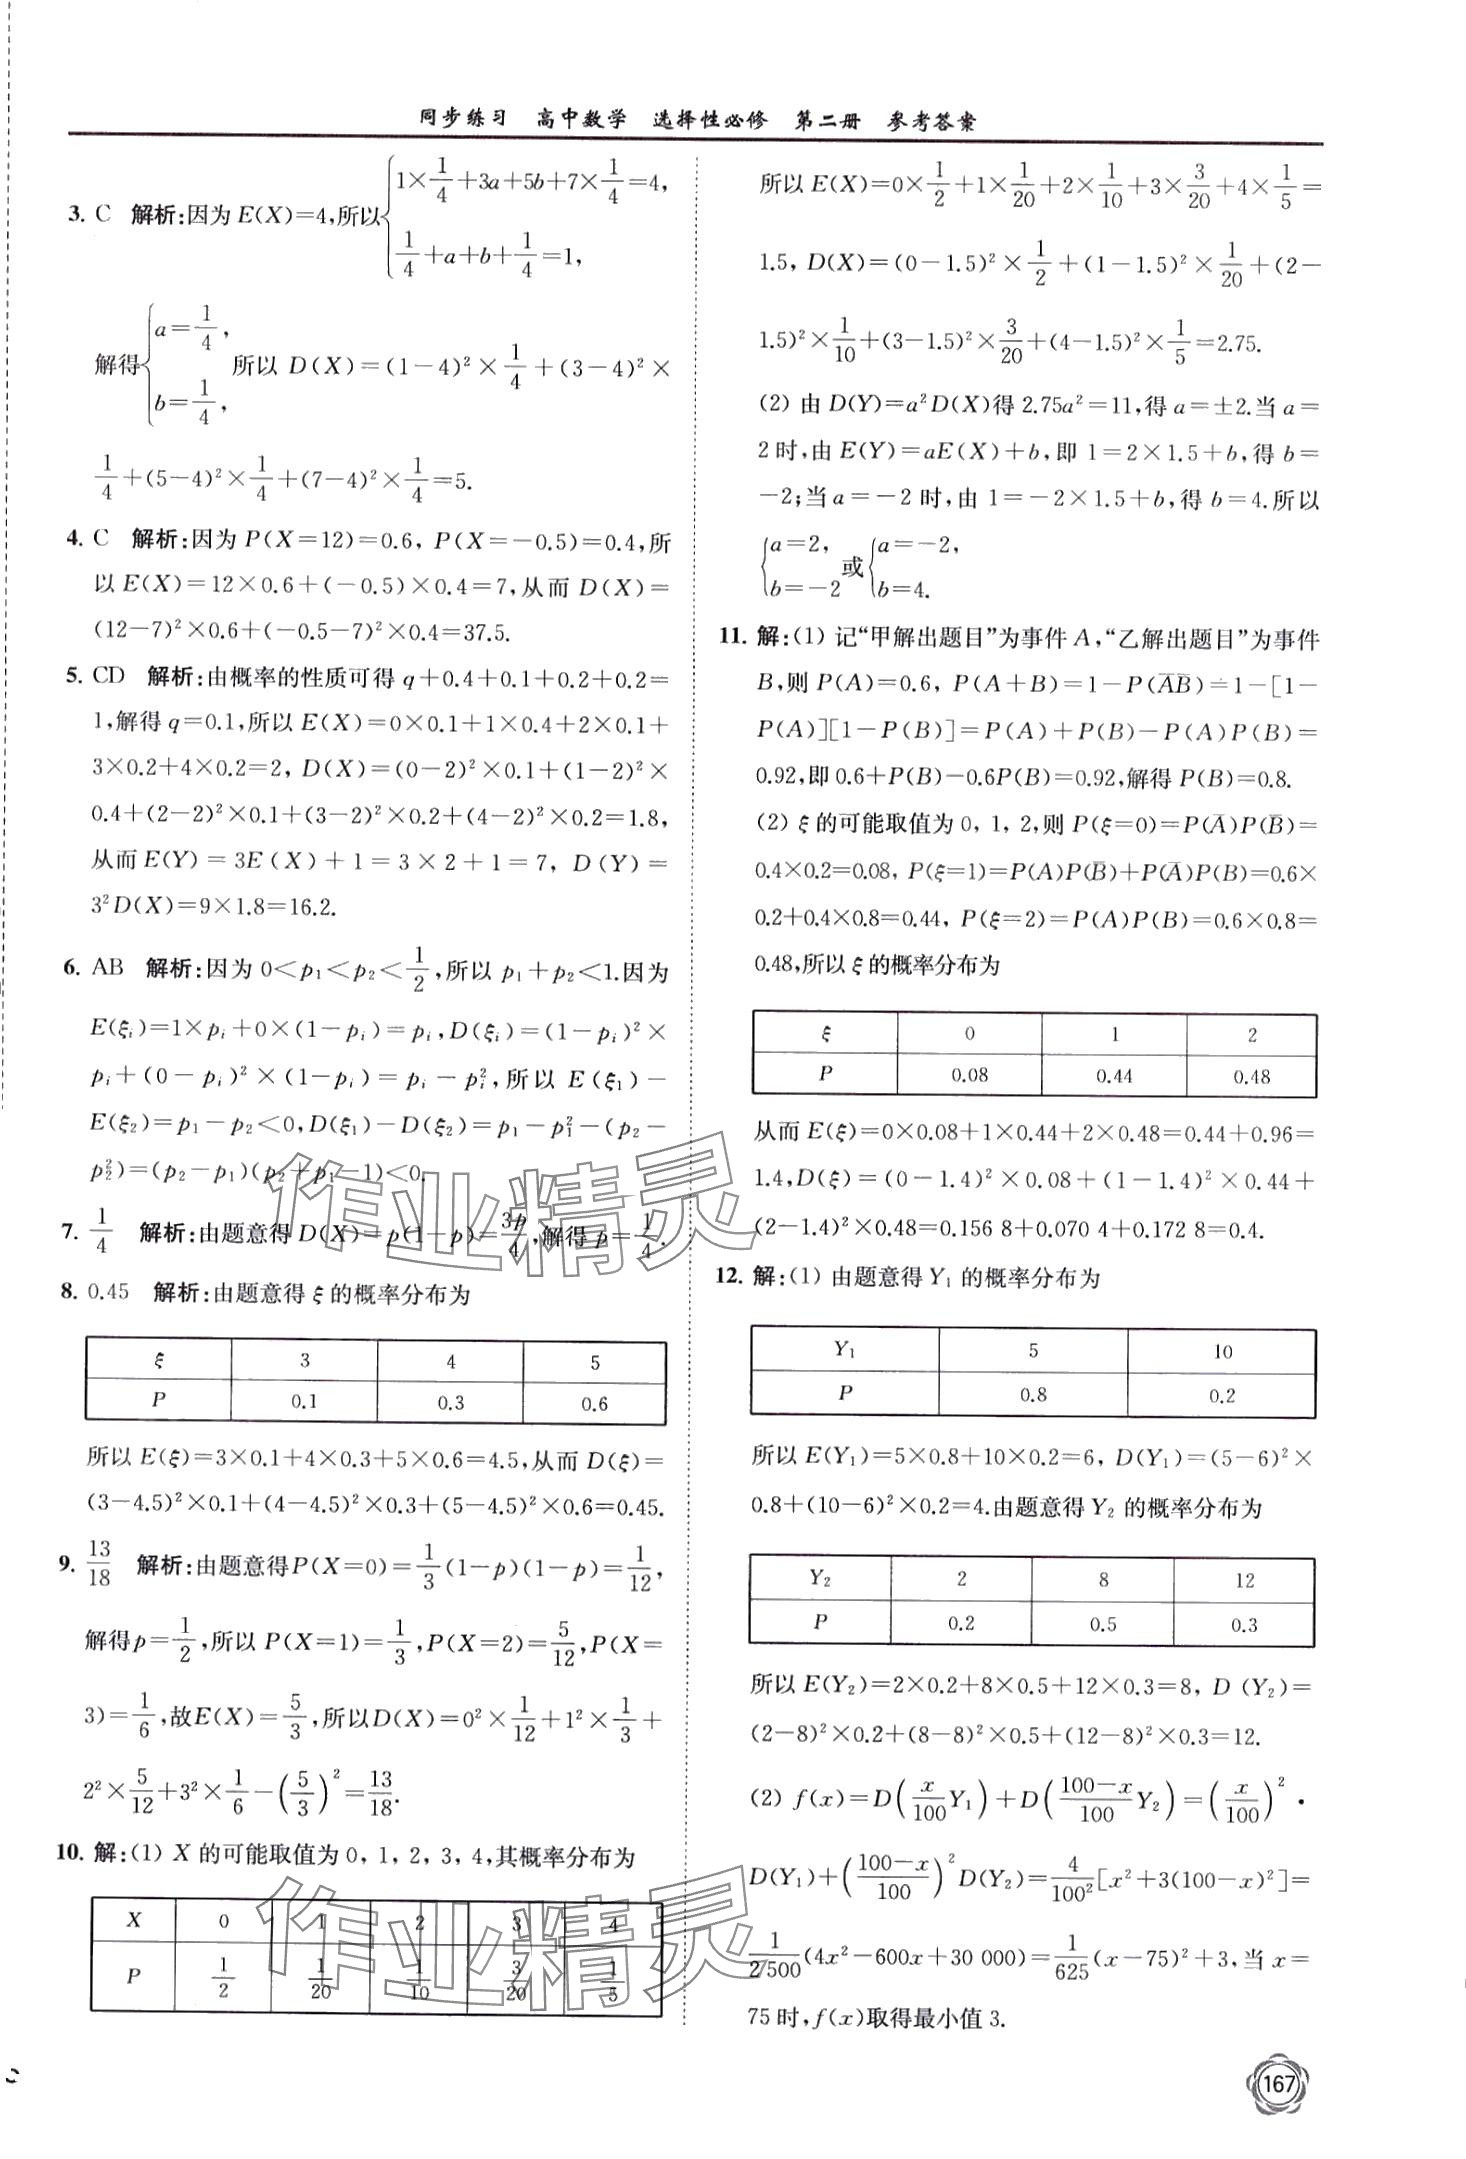 同步练习 高中数学 选择性必修 第二册 参考答案
3. C 解析:因为 E(X)=4,所以{1×1/4+3a+5b+7×1/4=4,
1/4+a+b+1/4=1,
解得{a=1/4, b=1/4, 所以 D(X)=(1-4)²×1/4+(3-4)²×
1/4+(5-4)²×1/4+(7-4)²×1/4=5.
4. C 解析:因为 P(X=12)=0.6, P(X=-0.5)=0.4,所
以 E(X)=12×0.6+(-0.5)×0.4=7,从而 D(X)=
(12-7)²×0.6+(-0.5-7)²×0.4=37.5.
5. CD 解析:由概率的性质可得 q+0.4+0.1+0.2+0.2=
1,解得 q=0.1,所以 E(X)=0×0.1+1×0.4+2×0.1+
3×0.2+4×0.2=2, D(X)=(0-2)²×0.1+(1-2)²×
0.4+(2-2)²×0.1+(3-2)²×0.2+(4-2)²×0.2=1.8,
从而 E(Y)=3E(X)+1=3×2+1=7, D(Y)=
3²D(X)=9×1.8=16.2.
6. AB 解析:因为 0<p₁<p₂<1/2,所以 p₁+p₂<1.因为
E(ξᵢ)=1×pᵢ+0×(1-pᵢ)=pᵢ,D(ξᵢ)=(1-pᵢ)²×
pᵢ+(0-pᵢ)²×(1-pᵢ)=pᵢ-pᵢ²,所以 E(ξ₁)-
E(ξ₂)=p₁-p₂<0,D(ξ₁)-D(ξ₂)=p₁-p₁²-(p₂-
p₂²)=(p₂-p₁)(p₂+p₁-1)<0.
7. 1/4 解析:由题意得 D(X)=p(1-p)=3p/4,解得 p=1/4.
8. 0.45 解析:由题意得 ξ 的概率分布为
ξ 3 4 5
P 0.1 0.3 0.6
所以 E(ξ)=3×0.1+4×0.3+5×0.6=4.5,从而 D(ξ)=
(3-4.5)²×0.1+(4-4.5)²×0.3+(5-4.5)²×0.6=0.45.
9. 13/18 解析:由题意得P(X=0)=1/3(1-p)(1-p)=1/12,
解得p=1/2,所以 P(X=1)=1/3,P(X=2)=5/12,P(X=
3)=1/6,故E(X)=5/3,所以D(X)=0²×1/12+1²×1/3+
2²×5/12+3²×1/6-(5/3)²=13/18.
10. 解:(1) X 的可能取值为 0, 1, 2, 3, 4,其概率分布为
X 0 1 2 3 4
P 1/2 1/20 1/10 3/20 1/5
所以 E(X)=0×1/2+1×1/20+2×1/10+3×3/20+4×1/5=
1.5, D(X)=(0-1.5)²×1/2+(1-1.5)²×1/20+(2-
1.5)²×1/10+(3-1.5)²×3/20+(4-1.5)²×1/5=2.75.
(2) 由 D(Y)=a²D(X)得 2.75a²=11,得 a=±2.当 a=
2时,由 E(Y)=aE(X)+b,即 1=2×1.5+b,得 b=
-2;当 a=-2 时,由 1=-2×1.5+b,得 b=4.所以
{a=2, b=-2 或 {a=-2, b=4.
11. 解:(1) 记“甲解出题目”为事件 A,“乙解出题目”为事件
B,则 P(A)=0.6, P(A+B)=1-P(A̅B̅)=1-[1-
P(A)][1-P(B)]=P(A)+P(B)-P(A)P(B)=
0.92,即 0.6+P(B)-0.6P(B)=0.92,解得 P(B)=0.8.
(2) ξ 的可能取值为 0, 1, 2,则 P(ξ=0)=P(A̅)P(B̅)=
0.4×0.2=0.08, P(ξ=1)=P(A)P(B̅)+P(A̅)P(B)=0.6×
0.2+0.4×0.8=0.44, P(ξ=2)=P(A)P(B)=0.6×0.8=
0.48,所以 ξ 的概率分布为
ξ 0 1 2
P 0.08 0.44 0.48
从而 E(ξ)=0×0.08+1×0.44+2×0.48=0.44+0.96=
1.4,D(ξ)=(0-1.4)²×0.08+(1-1.4)²×0.44+
(2-1.4)²×0.48=0.156 8+0.070 4+0.172 8=0.4.
12. 解:(1) 由题意得 Y₁ 的概率分布为
Y₁ 5 10
P 0.8 0.2
所以 E(Y₁)=5×0.8+10×0.2=6, D(Y₁)=(5-6)²×
0.8+(10-6)²×0.2=4.由题意得 Y₂ 的概率分布为
Y₂ 2 8 12
P 0.2 0.5 0.3
所以 E(Y₂)=2×0.2+8×0.5+12×0.3=8, D(Y₂)=
(2-8)²×0.2+(8-8)²×0.5+(12-8)²×0.3=12.
(2) f(x)=D(x/100 Y₁)+D((100-x)/100 Y₂)=(x/100)²·
D(Y₁)+((100-x)/100)²D(Y₂)=4/100²[x²+3(100-x)²]=
1/2 500(4x²-600x+30 000)=1/625(x-75)²+3,当 x=
75 时,f(x)取得最小值 3.
167
作业精灵
作业精灵